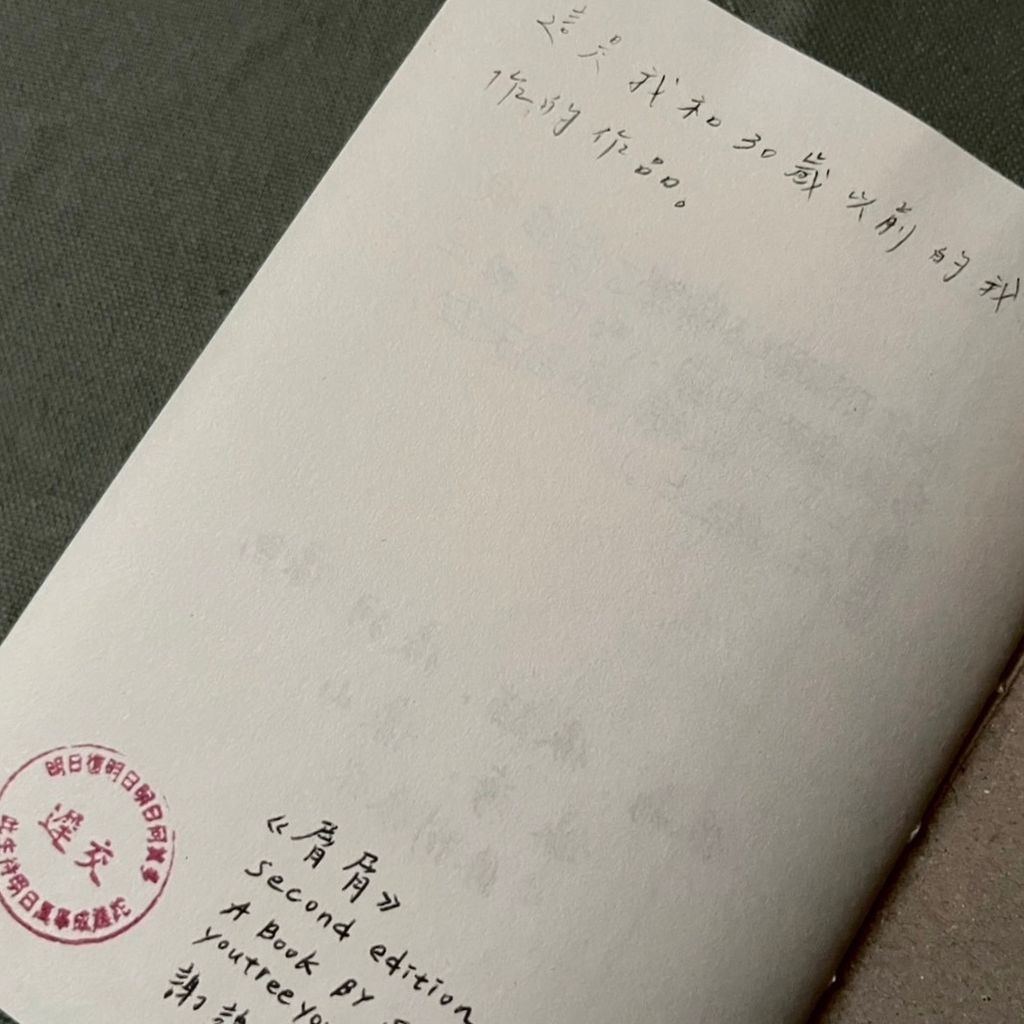 這是我和30歲以前的我
作的作品。
明日復明日明日何其多
遲交
我生待明日萬事成蹉跎
《屑屑》
Second edition
A Book By
謝謝